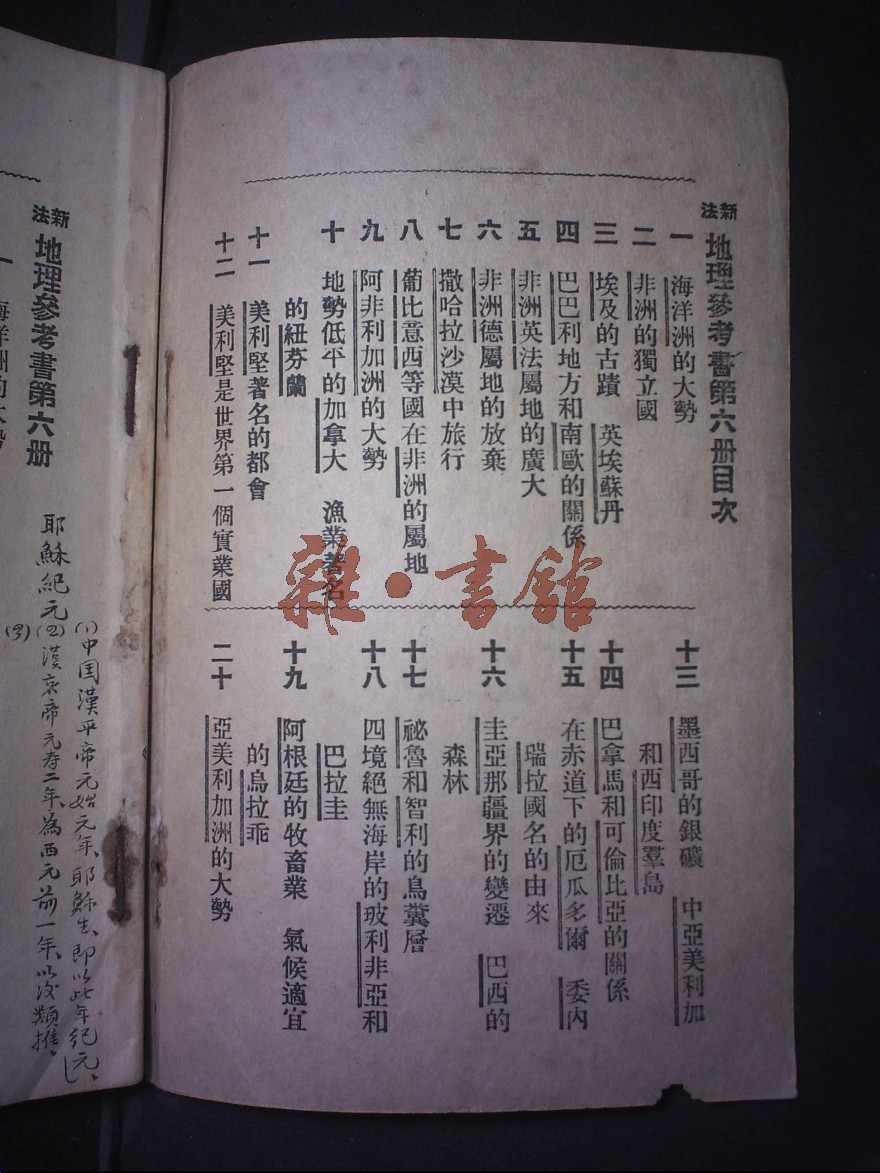 新法地理參考書第六册目次
一 海洋洲的大勢
二 非洲的獨立國
三 埃及的古蹟 英埃蘇丹
四 巴巴利地方和南歐的關係
五 非洲英法屬地的廣大
六 非洲德屬地的放棄
七 撒哈拉沙漠中旅行
八 葡比意西等國在非洲的屬地
九 阿非利加洲的大勢
十 地勢低平的加拿大 漁業著名
的紐芬蘭
十一 美利堅著名的都會
十二 美利堅是世界第一個實業國
十三 墨西哥的銀礦 中亞美利加
和西印度羣島
十四 巴拿馬和可倫比亞的關係
十五 在赤道下的厄瓜多爾 委內
瑞拉國名的由來
十六 圭亞那疆界的變遷 巴西的
森林
十七 祕魯和智利的鳥糞層
十八 四境絕無海岸的玻利非亞和
巴拉圭
十九 阿根廷的牧畜業 氣候適宜
的烏拉乖
二十 亞美利加洲的大勢
雜·書館
新法地理參考書第六册
一 海洋洲的大勢
耶穌紀元
(1)中国漢平帝元始元年、耶穌生、即以此年紀元、
(2)漢哀帝元寿二年、為西元前一年、以次類推、
(3)